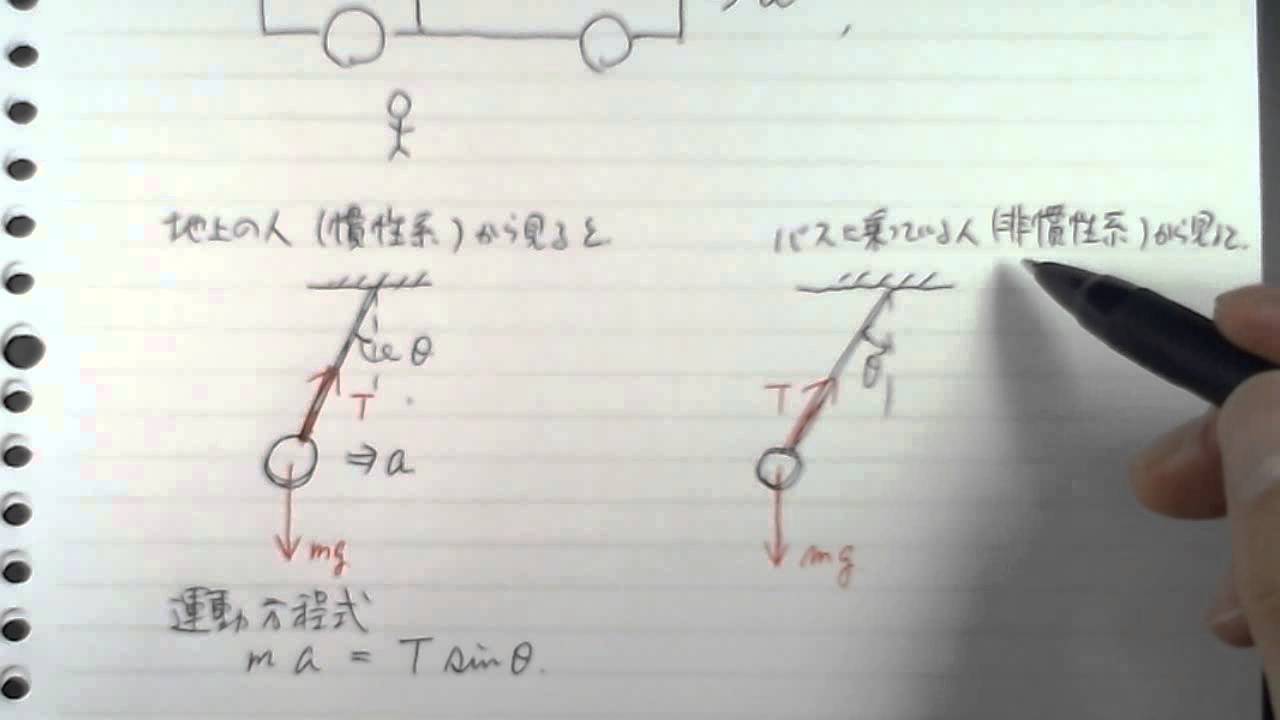 a
地上の人(慣性系)から見ると
バスに乗っている人(非慣性系)から見ると.
θ
T
⇒a
mg
θ
T
mg
運動方程式
ma = T sinθ.